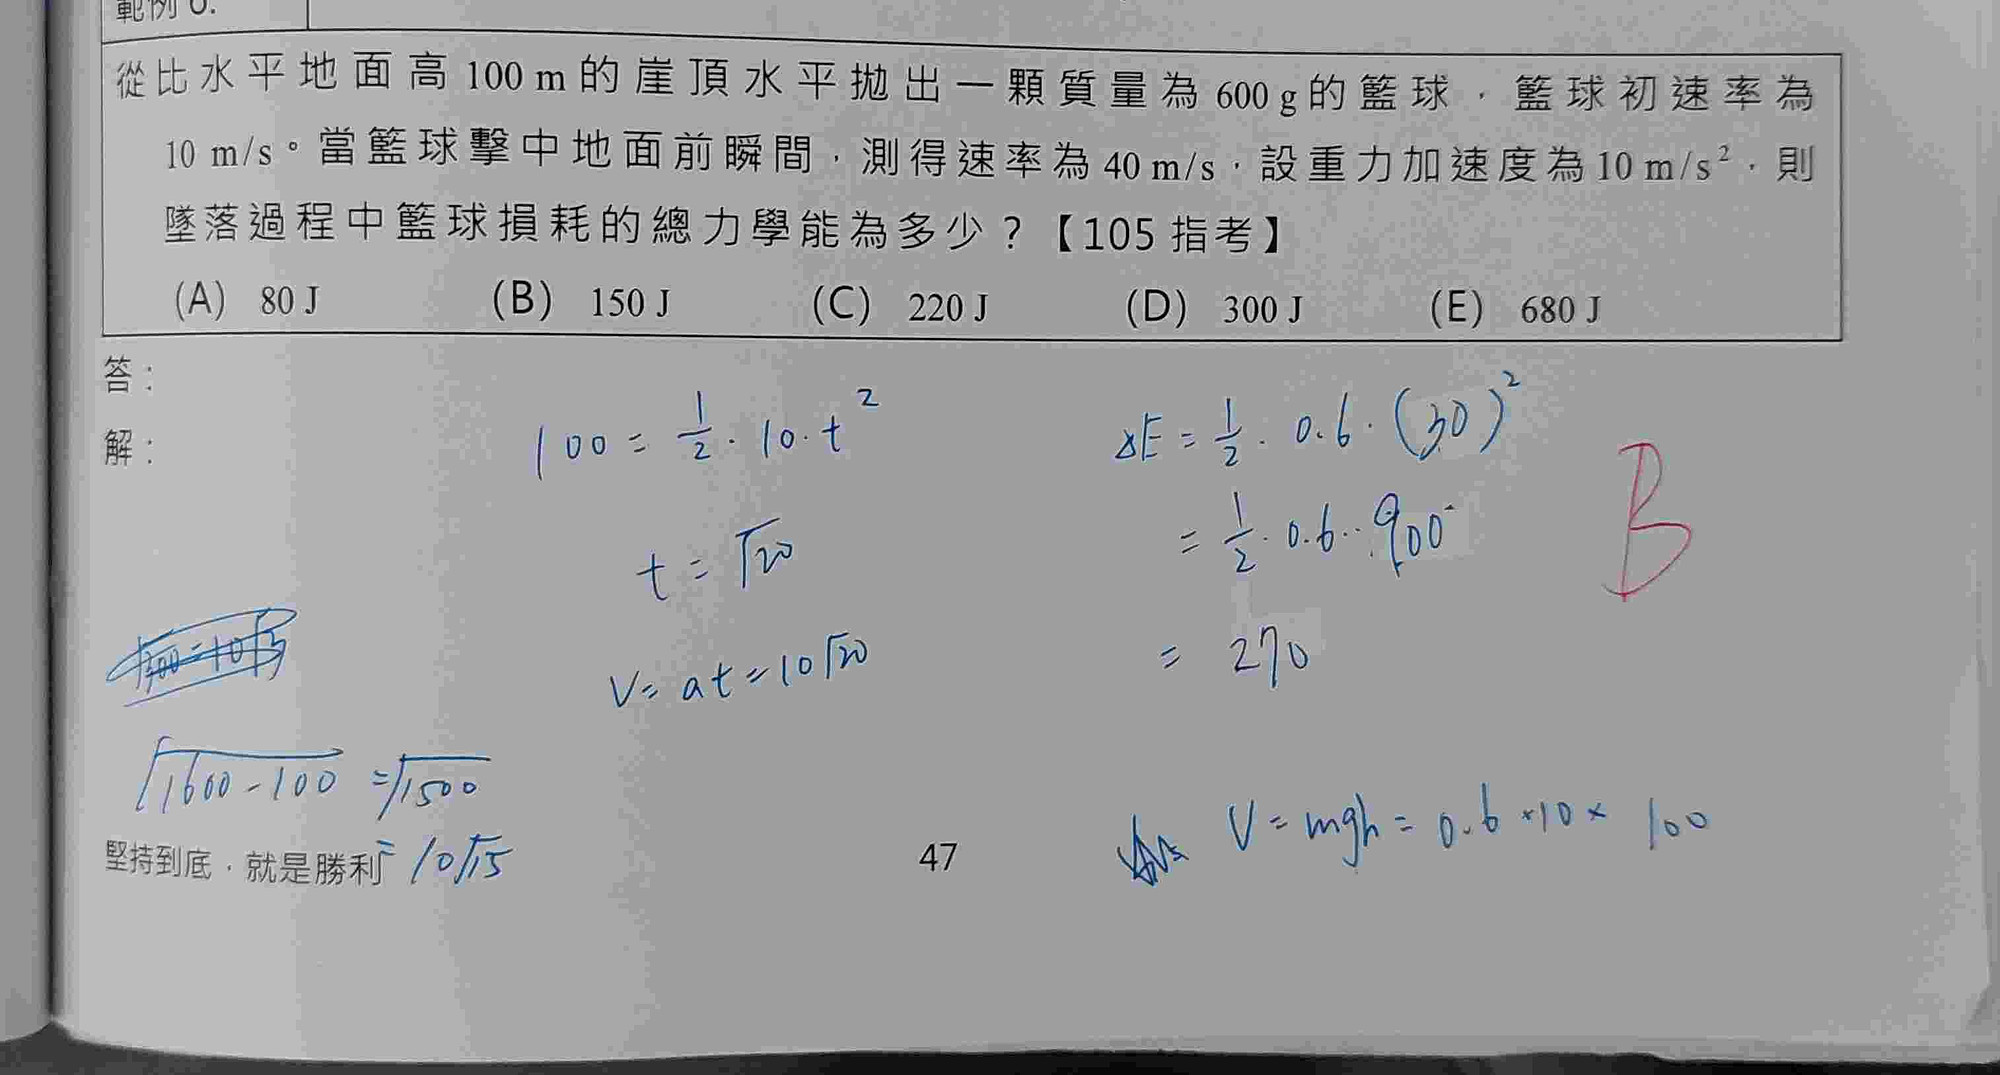 範例 6.
從比水平地面高 100 m 的崖頂水平拋出一顆質量為 600 g 的籃球，籃球初速率為
10 m/s。當籃球擊中地面前瞬間，測得速率為 40 m/s，設重力加速度為 10 m/s²，則
墜落過程中籃球損耗的總力學能為多少？【105 指考】
(A) 80 J (B) 150 J (C) 220 J (D) 300 J (E) 680 J
答：
解：
100 = 1/2 · 10 · t²
t = √20
V = at = 10√20
ΔE = 1/2 · 0.6 · (30)²
= 1/2 · 0.6 · 900
= 270
B
√1600-100 = √1500
= 10√15
V = mgh = 0.6 × 10 × 100
堅持到底，就是勝利
47